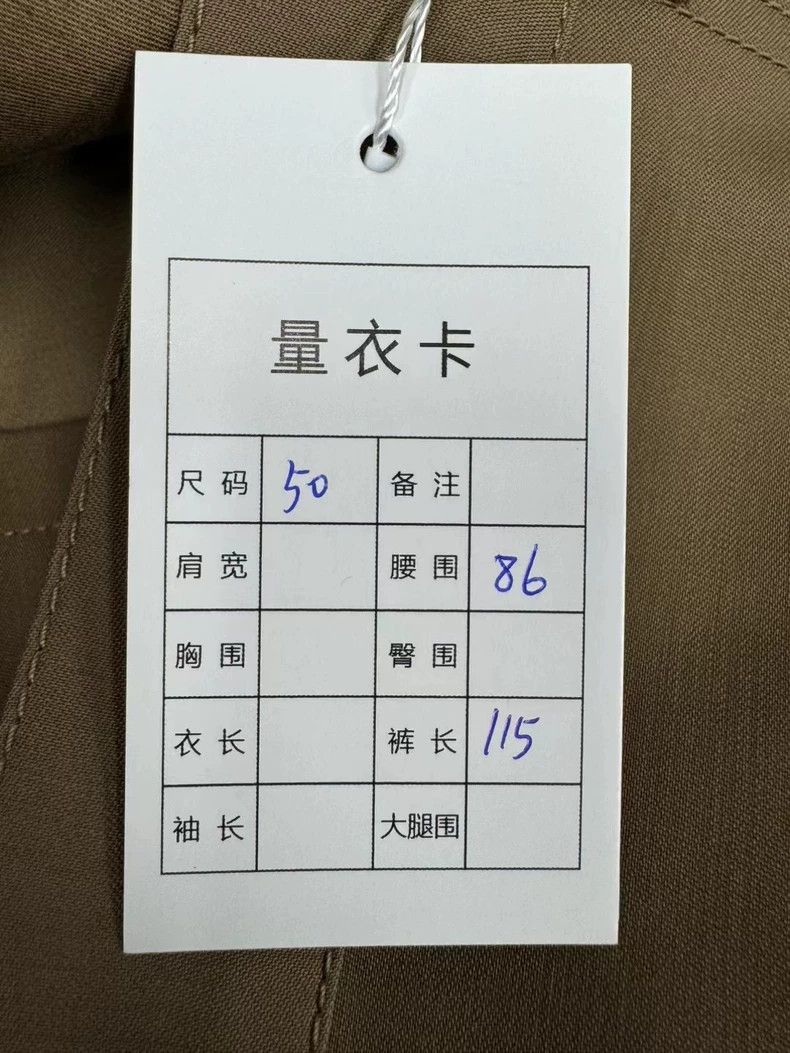 量衣卡
尺码 50 备注
肩宽 腰围 86
胸围 臀围
衣长 裤长 115
袖长 大腿围